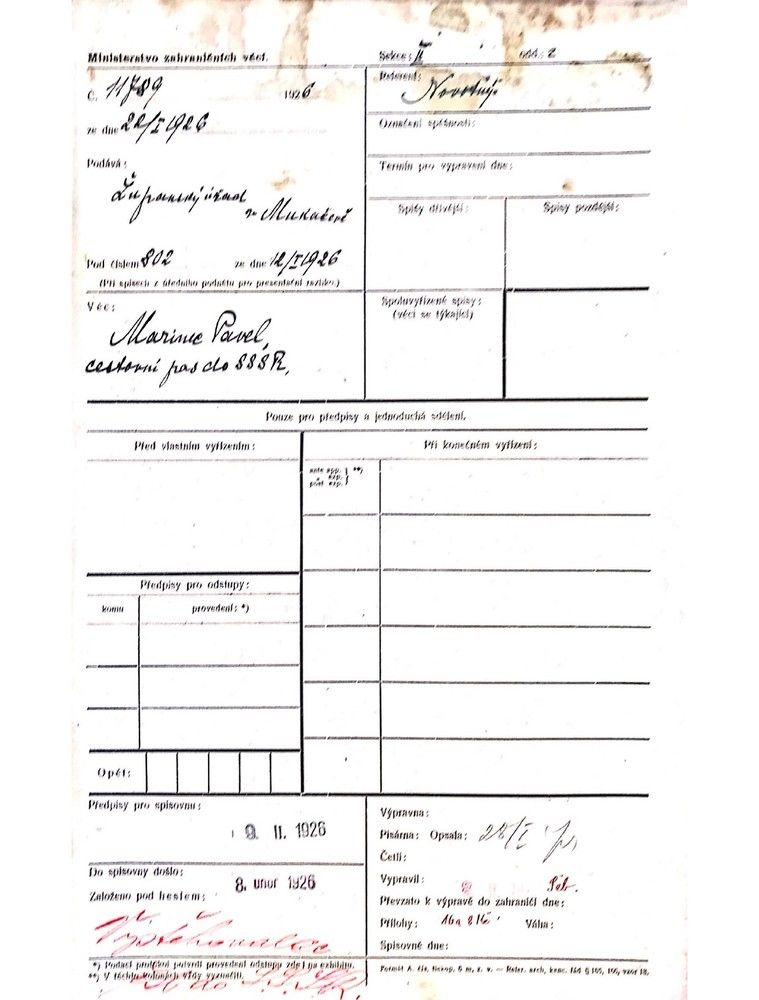 Ministerstvo zahraničních věcí.
Sekce: II odd.: 2
Č. 11789 1926
ze dne 22/I 1926
Referent: Novotný
Označení spěšnosti:
Termín pro vypravení dne:
Podává:
Županský úřad
v Mukačevě
Pod číslem 802 ze dne 12/I 1926
(Při spisech z úředního podnětu pro presentační razítko.)
Spisy dřívější:
Spisy pozdější:
Věc:
Marinec Pavel,
cestovní pas do SSSR.
Spoluvyřízené spisy:
(věci se týkající)
Pouze pro předpisy a jednoduchá sdělení.
Před vlastním vyřízením:
Při konečném vyřízení:
ante app. } **)
exp.
post exp. }
Předpisy pro odstupy:
komu provedení: *)
Opět:
Předpisy pro spisovnu:
9. II. 1926
Do spisovny došlo:
8. únor 1926
Založeno pod heslem:
Vystěhovalec
do S.S.S.R.
*) Podací protokol potvrdí provedení odstupu zde i na exhibitu.
**) V těchto kolonách vždy vyznačiti.
Výpravna:
Písárna: Opsala: 28/I
Četli:
Vypravil:
Převzato k výpravě do zahraničí dne:
Přílohy: Váha:
Spisovně dne: